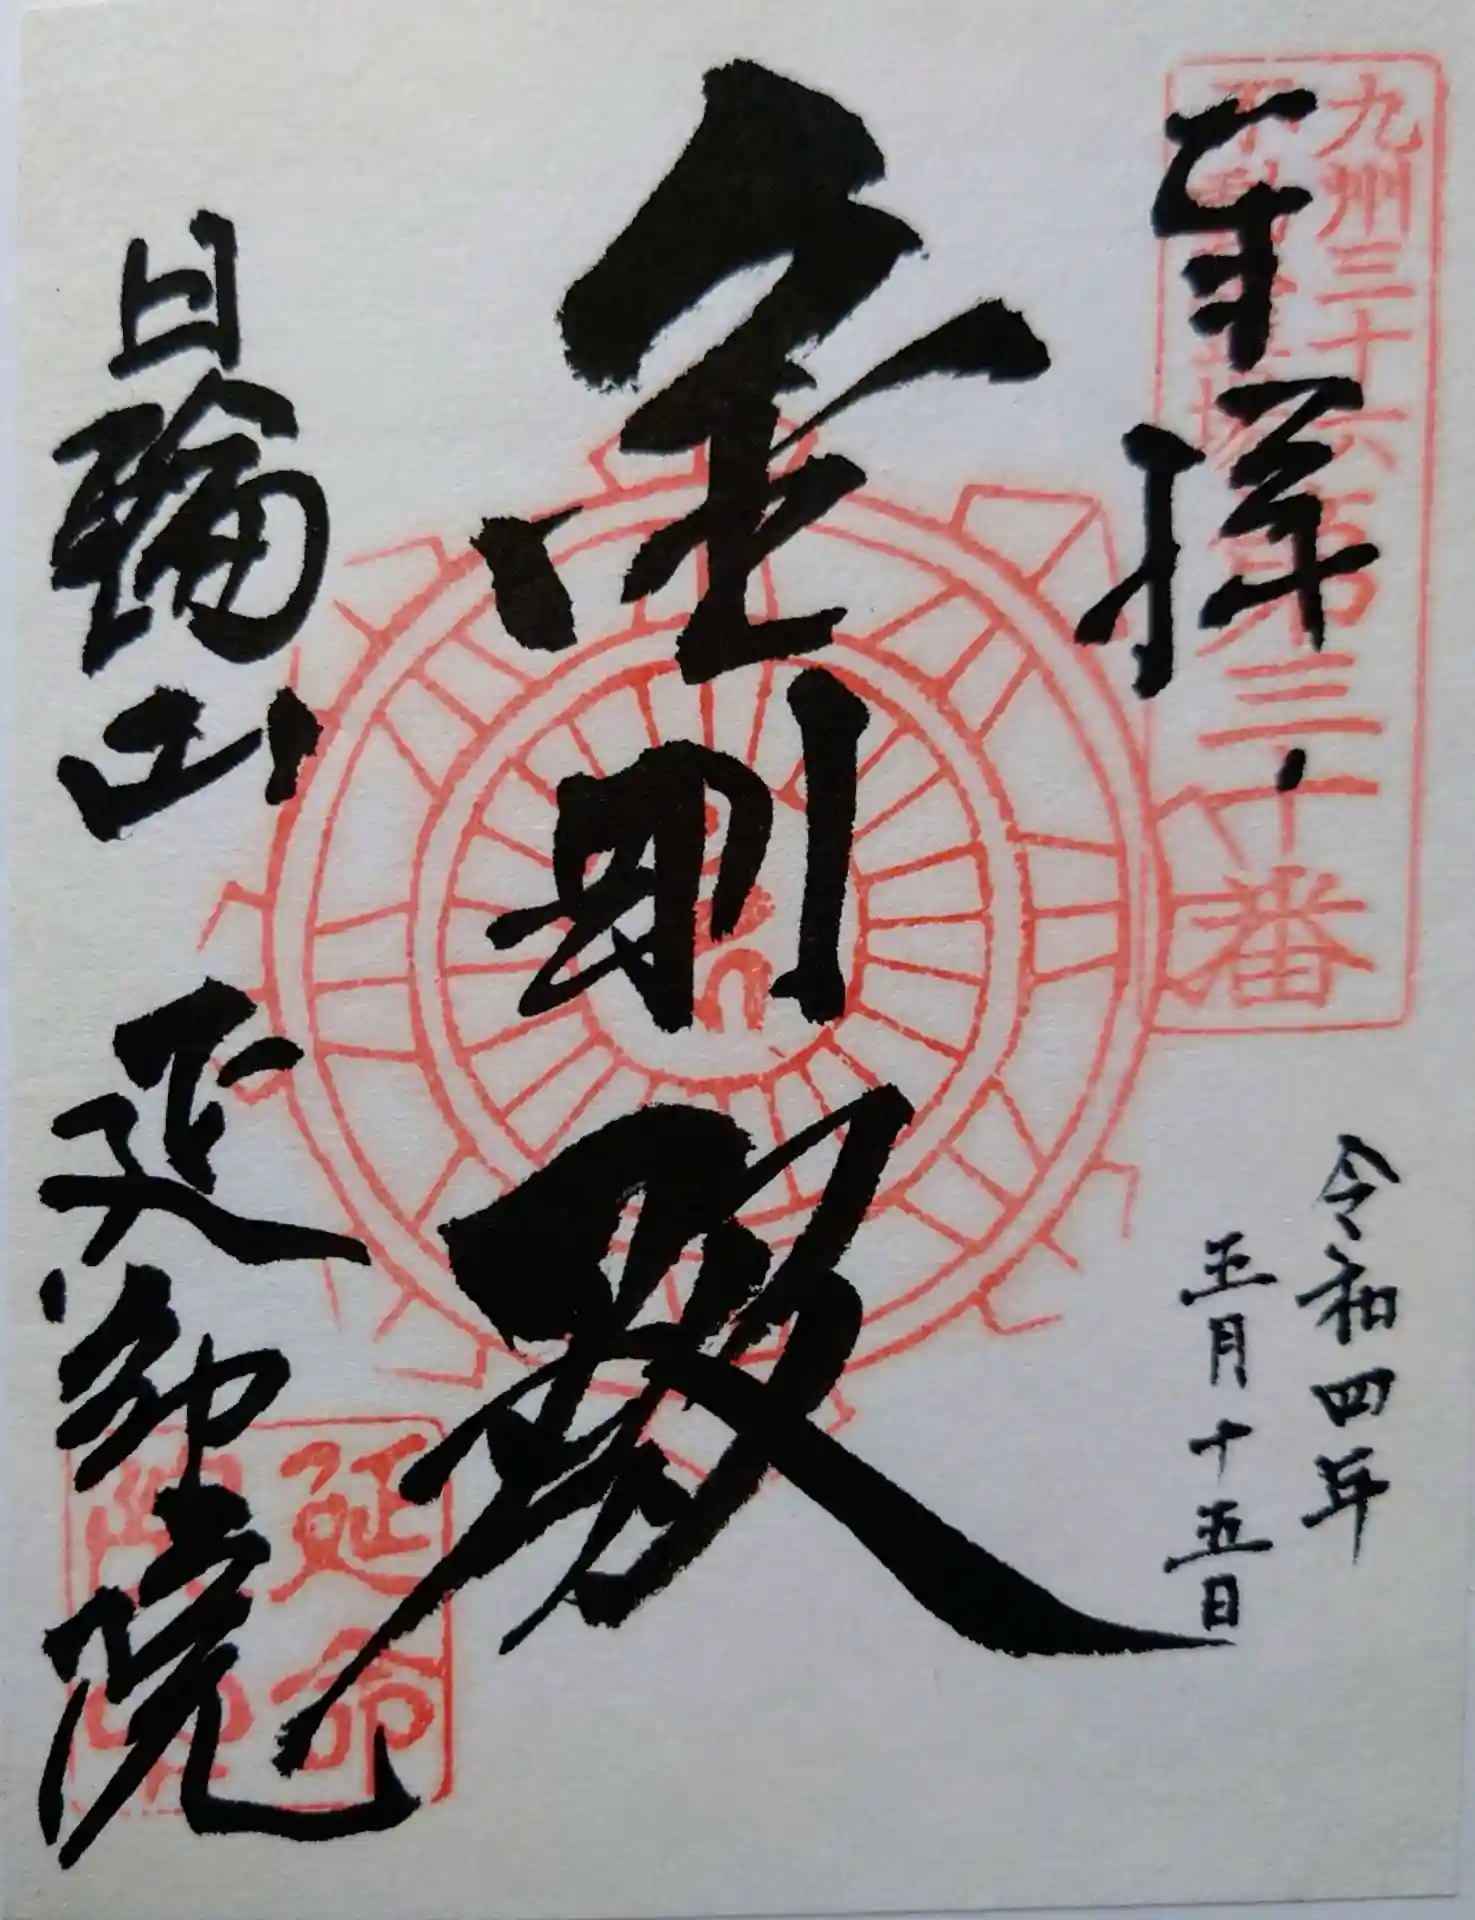 奉拝
九州三十六
不動霊場第三十番
令和四年
五月十五日
金剛殿
日輪山 延命院
延命